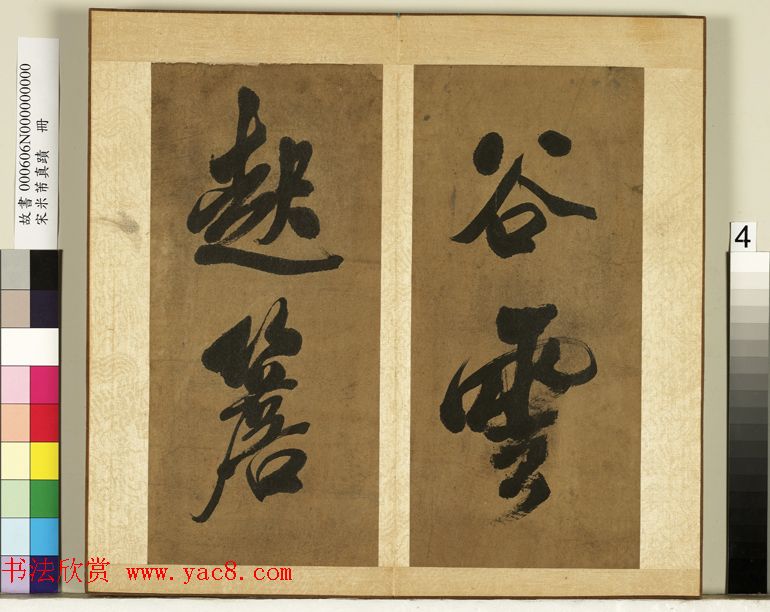 谷雲
故書 000606N000000000
宋米芾真蹟 冊
4
书法欣赏 www.yac8.com